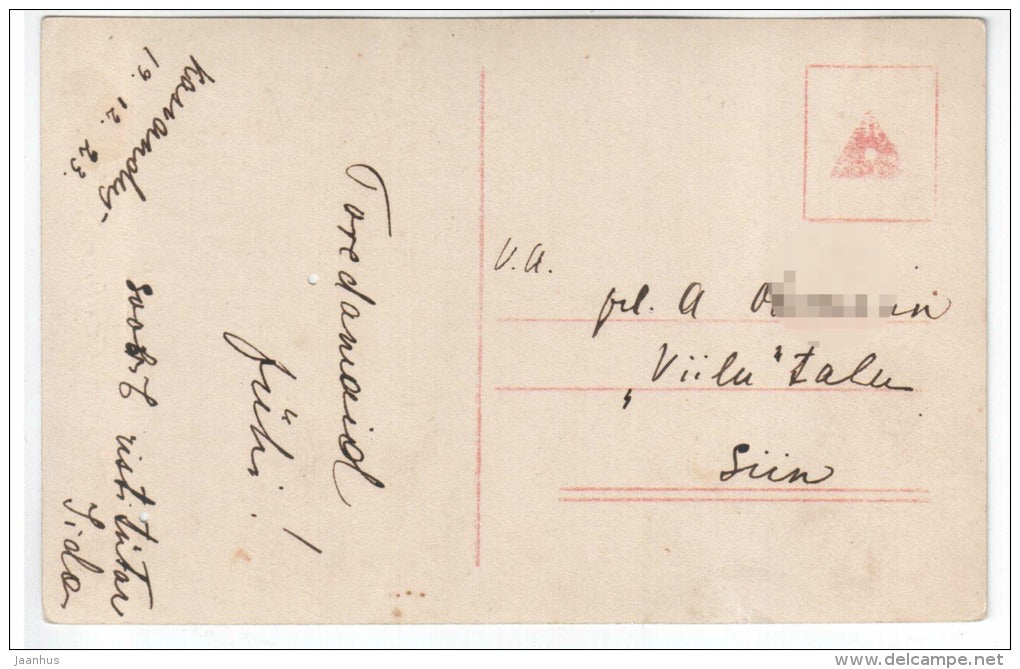 Kasvandus-
19. 12. 23.
Toredamaid
jühi!
soovit ristitütar
Iida
V.A.
prl. A
„Viilu" talu
Siin
Jaanhus
www.delcampe.net